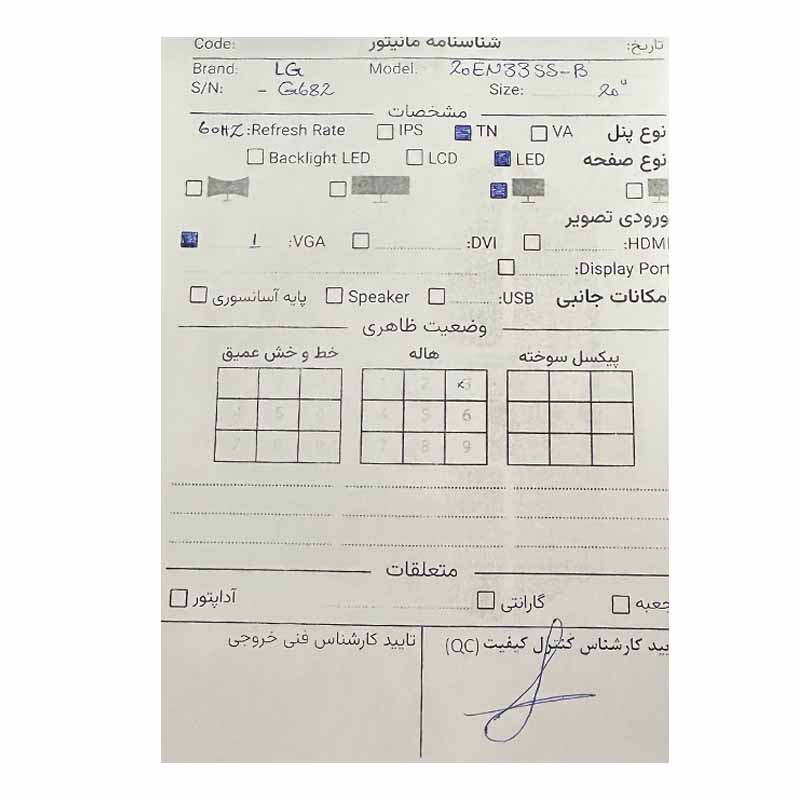 تاریخ: شناسنامه مانیتور Code:
Brand: LG Model: 20EN33SS-B
S/N: - G682 Size: 20"
مشخصات
نوع پنل VA TN IPS Refresh Rate: 60HZ
نوع صفحه LED LCD Backlight LED
ورودی تصویر
HDMI: DVI: VGA: 1
Display Port:
امکانات جانبی USB: Speaker پایه آسانسوری
وضعیت ظاهری
پیکسل سوخته هاله خط و خش عمیق
1 2 3
4 5 6 4 5 6
7 8 9 7 8 9
متعلقات
جعبه گارانتی آداپتور
یید کارشناس کنترل کیفیت (QC) تایید کارشناس فنی خروجی